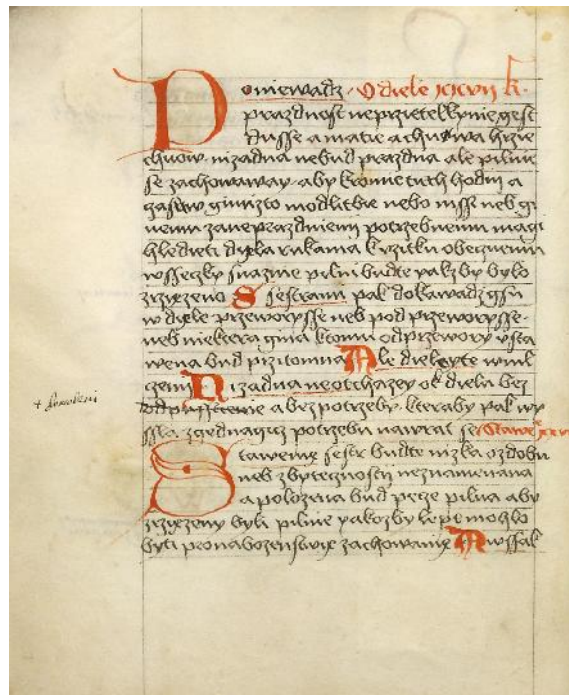 Poniewadz · O diele xxvii k.
prazdnost neprzetelkynie gest
dusse a matie a chuowa hrzie
chuow nizadna nebud prazdna ale pilnie
se zachowaway · aby kromie tiech hodin a
czasuow gimizto modlitbie nebo mssi neb gi
nemu zaneprazdnieni potrzebnemu magi
hledieti dijela rukama k vzitku obecznemu
wsseczky snazne pilni budte yakzby bylo
zrzyezeno S sestrami pak dokawadz gsu
w diele przeworysse neb pod przeworysse ·
neb niektera gina ktomu od przewory vsta
wena bud przitomna Ale dielayte w ml
czeni Nizadna neotchazey od diela bez
odpusstienie a bez potrzeby · kteraby pak wy
ssla zgednagicz potrzebu nawrat se
Stawenie sestr budte nizka ozdobu
neb zbytecznosti neznamenana
a polozena bud przes pilna aby
zrzyezeny byli pilnie yakozby lepe mohlo
byti pro nabozenstwie zachowanie A wssak